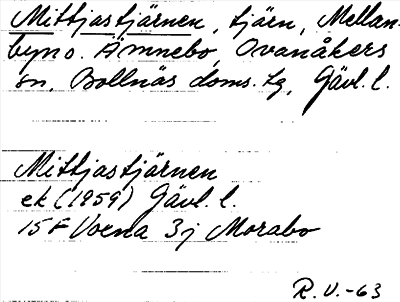 Mittjastjärnen, tjärn, Mellan-
byn o. Ämnebo, Ovanåkers
sn, Bollnäs doms. tg, Gävl. l.
Mittjastjärnen
ek (1959) Gävl. l.
15F Voxna 3j Morabo
R. V. -63